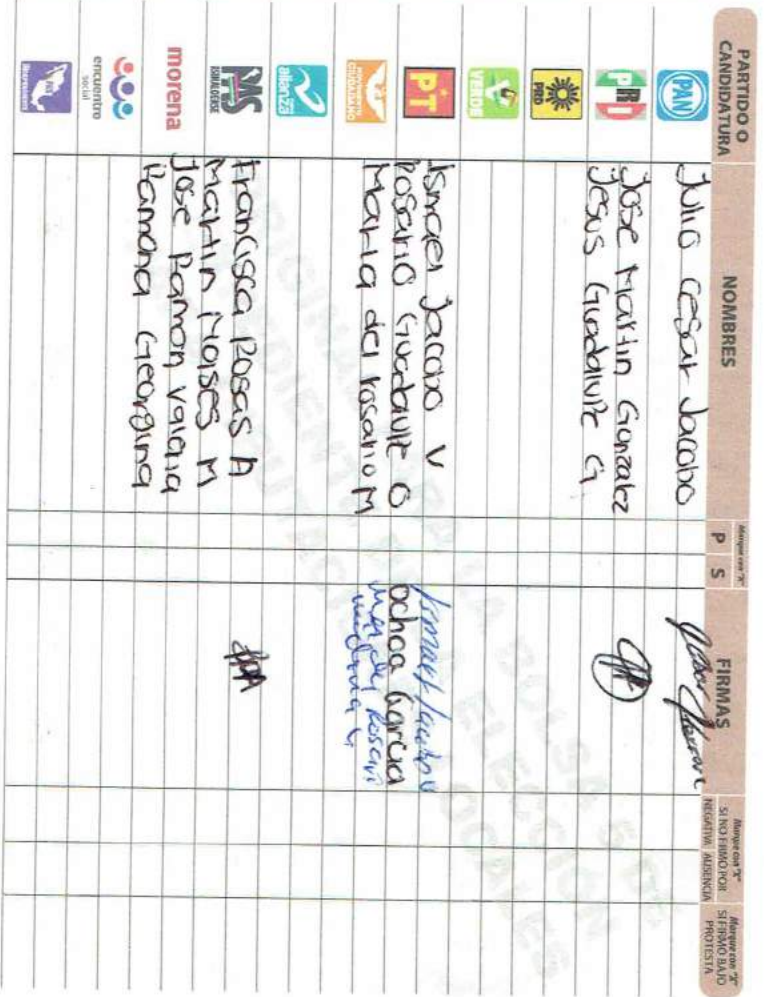 PARTIDO O CANDIDATURA
NOMBRES
Marque con "X"
P S
FIRMAS
Marque con "X"
SI NO FIRMÓ POR
NEGATIVA AUSENCIA
Marque con "X"
SI FIRMÓ BAJO PROTESTA
PAN
Julio Cesar Jacobo
PRI
Jose Martin Gonzalez
Jesus Guadalupe G
PRD
VERDE
PT
Ismael Jacobo V Ismael Jacobo V
Rosario Guadalupe O Ochoa Garcia
MOVIMIENTO CIUDADANO
Maria del rosario M Ma del Rosario
alianza
PAS
SINALOENSE
Francisca Rosas A
Martin Moises M
morena
Jose Ramon Valencia
Ramona Georgina
encuentro social
INDEPENDIENTE
ORIGINAL PARA LA BOLSA
EXPEDIENTE DE LA ELECCIÓN
DIPUTACIONES LOCALES